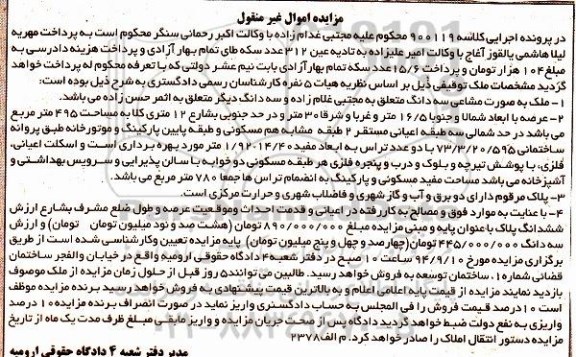 مزایده اموال غیر منقول
در پرونده اجرایی کلاسه ۹۰۰۱۱۹ محکوم علیه مجتبی غدام زاده با وکالت اکبر رحمانی سنگر محکوم است به پرداخت مهریه
لیلا هاشمی یالقوز آغاج با وکالت امیر علیزاده به تادیه عین ۳۱۲ عدد سکه طای تمام بهار آزادی و پرداخت هزینه دادرسی به
مبلغ ۱۰۴ هزار تومان و پرداخت ۱۵/۶ عدد سکه تمام بهار آزادی بابت نیم عشر دولتی که با تعرفه محکوم له پرداخت خواهد
گردید مشخصات ملک توقیفی ذیل بر اساس نظریه هیات ۵ نفره کارشناسان رسمی دادگستری به شرح ذیل بوده است:
۱- ملک به صورت مشاعی سه دانگ متعلق به مجتبی غلام زاده و سه دانگ دیگر متعلق به اثمر حسن زاده می باشد.
۲- عرصه با ابعاد شمالا و جنوبا ۱۶/۵ متر و غربا و شرقا ۳۰ متر و در حد جنوبی بشارع ۱۲ متری کلا به مساحت ۴۹۵ متر مربع
می باشد در حد شمالی سه طبقه اعیانی مستقر ۲ طبقه مشابه هم مسکونی و طبقه پایین پارکینگ و موتورخانه طبق پروانه
ساختمانی ۷۳/۳/۲۰/۵۹۵ با دو عدد تراس به ابعاد مفید ۱۴/۴۰-۱/۹۲ متر مورد بهره برداری است و اسکلت اعیانی،
فلزی، با پوشش تیرچه و بلوک و درب و پنجره فلزی هر طبقه مسکونی دو خوابه با سالن پذیرایی و سرویس بهداشتی و
آشپزخانه می باشد مساحت مفید مسکونی و پارکینگ به انضمام تراس ها جمعا ۷۸۰ متر مربع می باشد.
۳- پلاک مرقوم دارای دو برق و آب و گاز شهری و فاضلاب شهری و حرارت مرکزی است.
۴- با عنایت به موارد فوق و مصالح به کار رفته در اعیانی و قدمت احداث و موقعیت عرصه و طول ضلع مشرف بشارع ارزش
ششدانگ پلاک با عنوان پایه و مبنی مزایده مبلغ ۸۹۰/۰۰۰/۰۰۰ تومان (هشت صد و نود میلیون تومان تومان) و ارزش
سه دانگ ۴۴۵/۰۰۰/۰۰۰ تومان (چهارصد و چهل و پنج میلیون تومان) پایه مزایده تعیین و کارشناسی شده است از طریق
برگزاری مزایده مورخ ۹۴/۹/۱۰ ساعت ۱۰ صبح در دفتر شعبه ۴ دادگاه حقوقی ارومیه واقع در خیابان والفجر ساختمان
قضائی شماره ۱. ساختمان توسعه به فروش خواهد رسید. طالبین می توانند ۵ روز قبل از حلول زمان مزایده از ملک موصوف
بازدید نمایند مزایده از قیمت پایه اعلامی اعلام و به بالاترین قیمت پیشنهادی به فروش خواهد رسید برنده مزایده موظف
است ۱۰ درصد قیمت فروش را فی المجلس به حساب دادگستری واریز نماید در صورت انصراف برنده مزایده ۱۰ درصد
واریزی به نفع دولت ضبط خواهد گردید دادگاه پس از صحت جریان مزایده و واریز مابقی مبلغ ظرف مدت یک ماه از تاریخ
مزایده دستور انتقال املاک را صادر خواهد کرد. م الف ۲۳۷۸
مدیر دفتر شعبه ۴ دادگاه حقوقی ارومیه